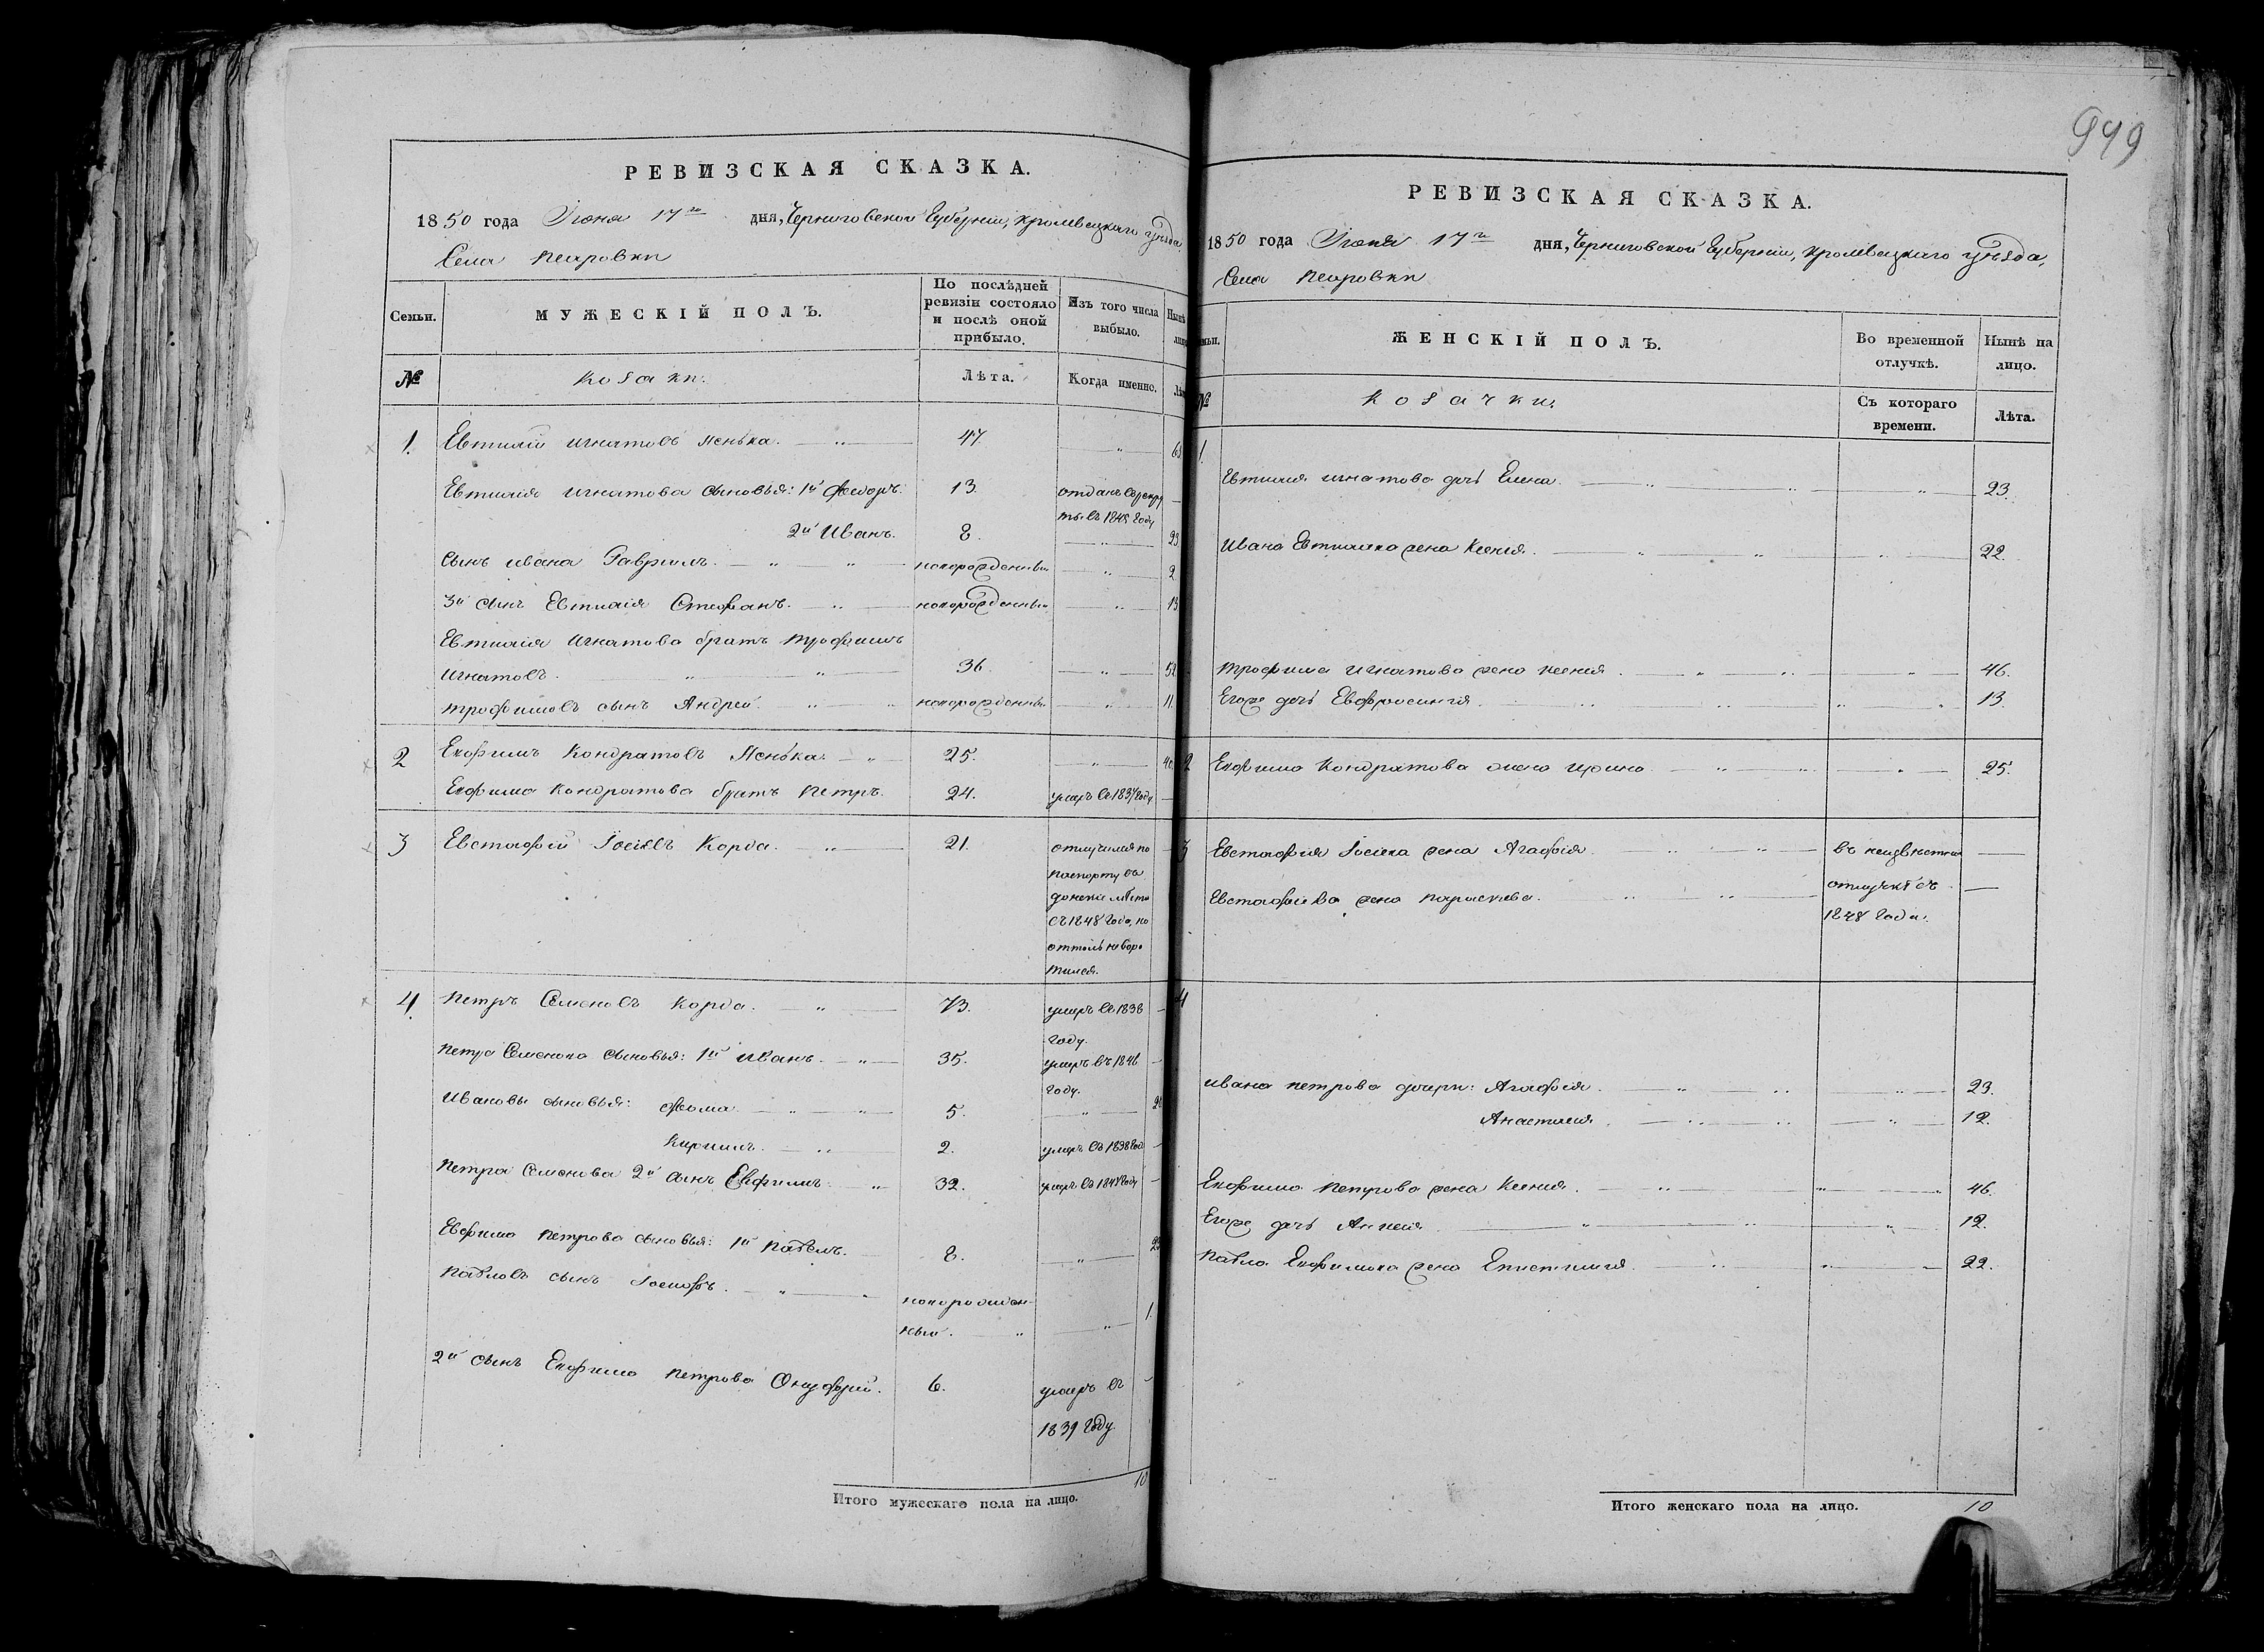 949
РЕВИЗСКАЯ СКАЗКА.
1850 года Іюня 17го дня, Черниговской Губерніи, Кролевецкаго уѣзда,
Села
Семьи.
МУЖЕСКІЙ ПОЛЪ.
По послѣдней ревизіи состояло и послѣ оной прибыло.
Изъ того числа выбыло.
№
Козаки.
Лѣта.
Когда именно.
1. Евтихій Игнатовъ 47. "
Евтихія Игнатова сыновья: 1й Федоръ. 13. отданъ въ рекру
ты въ 184 году
2й Иванъ. 8. " 23
Сынъ Ивана Гаврилъ. " " новорожденный " 2
3й сынъ Евтихія Стефанъ. " новорожденный " 13
Евтихія Игнатова братъ Трофимъ
Игнатовъ. " " 36. " 52
Трофимовъ сынъ Андрей. " " новорожденный " 11.
2 Евфимъ Кондратовъ " 25. " 40.
Евфима Кондратова братъ Петръ. 24. умеръ въ 1837 году
3 Евстафій Іосіевъ Корда. " 21. отлучился по
паспорту въ
донскіе мѣста
съ 1848 года, но
оттоль не воро
тился.
4. Петръ Семеновъ Корда. " 73. умеръ въ 1836
году.
Петра Семенова сыновья: 1й Иванъ. " 35. умеръ въ 1846
году.
Ивановы сыновья: Фома " " 5. "
Кирилъ. " 2. умеръ въ 1838 год
Петра Семенова 2й сынъ Евфимъ. " 32. умеръ въ 184 году
Евфима Петрова сыновья: 1й Павелъ. 8. "
Павловъ сынъ Іосифъ. " новорожден-
ный. " " 1.
2й сынъ Евфима Петрова Онуфрій. 6. умеръ въ
1839 году.
Итого мужескаго пола на лицо. 10
РЕВИЗСКАЯ СКАЗКА.
1850 года Іюня 17го дня, Черниговской Губерніи, Кролевецкаго уѣзда,
Села
ЖЕНСКІЙ ПОЛЪ.
Во временной отлучкѣ.
Нынѣ на лицо.
№
Козачки.
Съ котораго времени.
Лѣта.
1.
Евтихія Игнатова дочь Елена. " " " 23.
Ивана Евтихіева жена Ксенія. " " " 22.
Трофима Игнатова жена Ксенія. " " " 46.
Егоже дочь Евфросинія. " " " " 13.
2 Евфима Кондратова жена Ирина. " " " 25.
3 Евстафія Іосіева жена Агафія. " " въ неизвѣстной
Евстафіева жена Параскева. " " отлучкѣ съ
1848 года.
4
Ивана Петрова дочери: Агафія. " " " 23.
Анастасія. " " " 12.
Евфима Петрова жена Ксенія. " " " 46.
Егоже дочь " " " 12.
Павла Евфимова жена Епистимія. " " 22.
Итого женскаго пола на лицо. 10